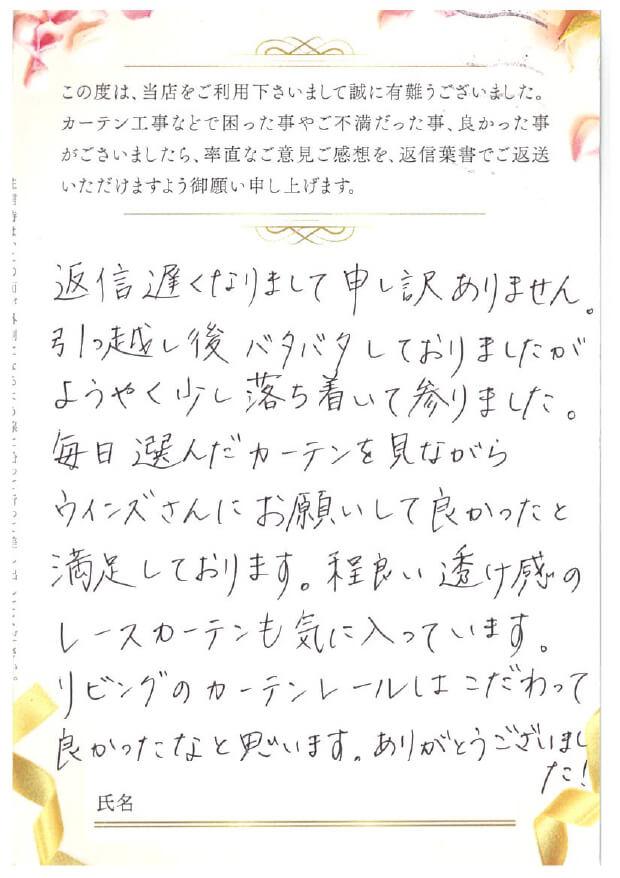 この度は、当店をご利用下さいまして誠に有難うございました。
カーテン工事などで困った事やご不満だった事、良かった事
がございましたら、率直なご意見ご感想を、返信葉書でご返送
いただけますよう御願い申し上げます。
返信遅くなりまして申し訳ありません。
引っ越し後バタバタしておりましたが
ようやく少し落ち着いて参りました。
毎日選んだカーテンを見ながら
ウインズさんにお願いして良かったと
満足しております。程良い透け感の
レースカーテンも気に入っています。
リビングのカーテンレールはこだわって
良かったなと思います。ありがとうございまし
た!
氏名